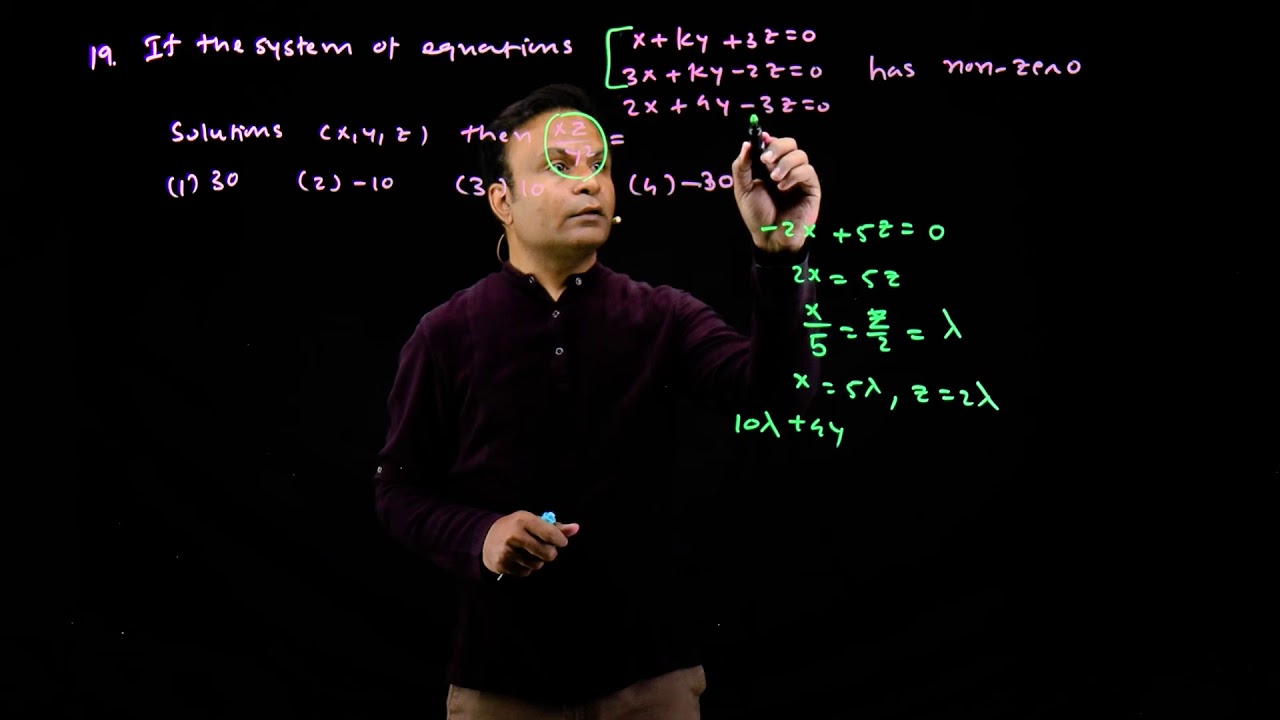 19. If the system of equations
x + ky + 3z = 0
3x + ky - 2z = 0 has non-zero
2x + 4y - 3z = 0
Solutions (x, y, z) then xz/y² =
(1) 30 (2) -10 (3) 10 (4) -30
-2x + 5z = 0
2x = 5z
x/5 = z/2 = λ
x = 5λ, z = 2λ
10λ + 4y